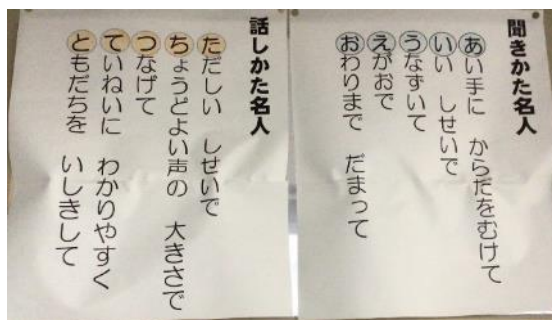 聞きかた名人
あい手に　からだをむけて
いい　しせいで
うなずいて
えがおで
おわりまで　だまって
話しかた名人
ただしい　しせいで
ちょうどよい声の　大きさで
つなげて
ていねいに　わかりやすく
ともだちを　いしきして